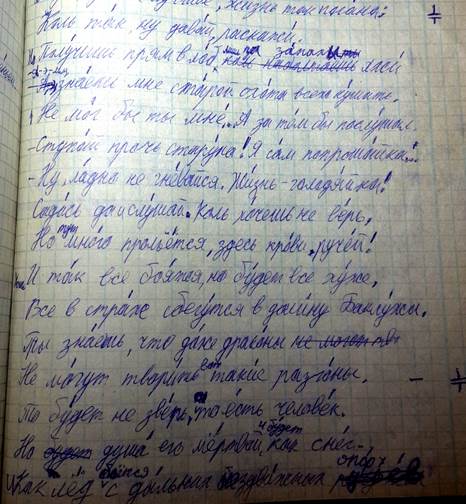 жизнь том погана!
Коль так, ну давай, расскажи.
Получишь прям в лоб
знаешь мне старой охота всего кушать.
Не мог бы ты мне.. А за тем бы послушал.
- Ступай прочь старуха! Я сам попрошайка!..
- Ну, ладно не гневайся. Жизнь - голодяйка!
Садись да и слушай. Коль хочешь не верь,
Но тут много прольётся, здесь крови. ручей!
И так все боятся, но будет все хуже,
Все в страхе сбегутся в долину Баклужи.
Ты знаешь, что даже драконы не могли
Не могут творить такие разгоны.
То будет не зверь, то есть человек.
Но душа его мёртвой, и будет как снег -
Как лёд с дальних